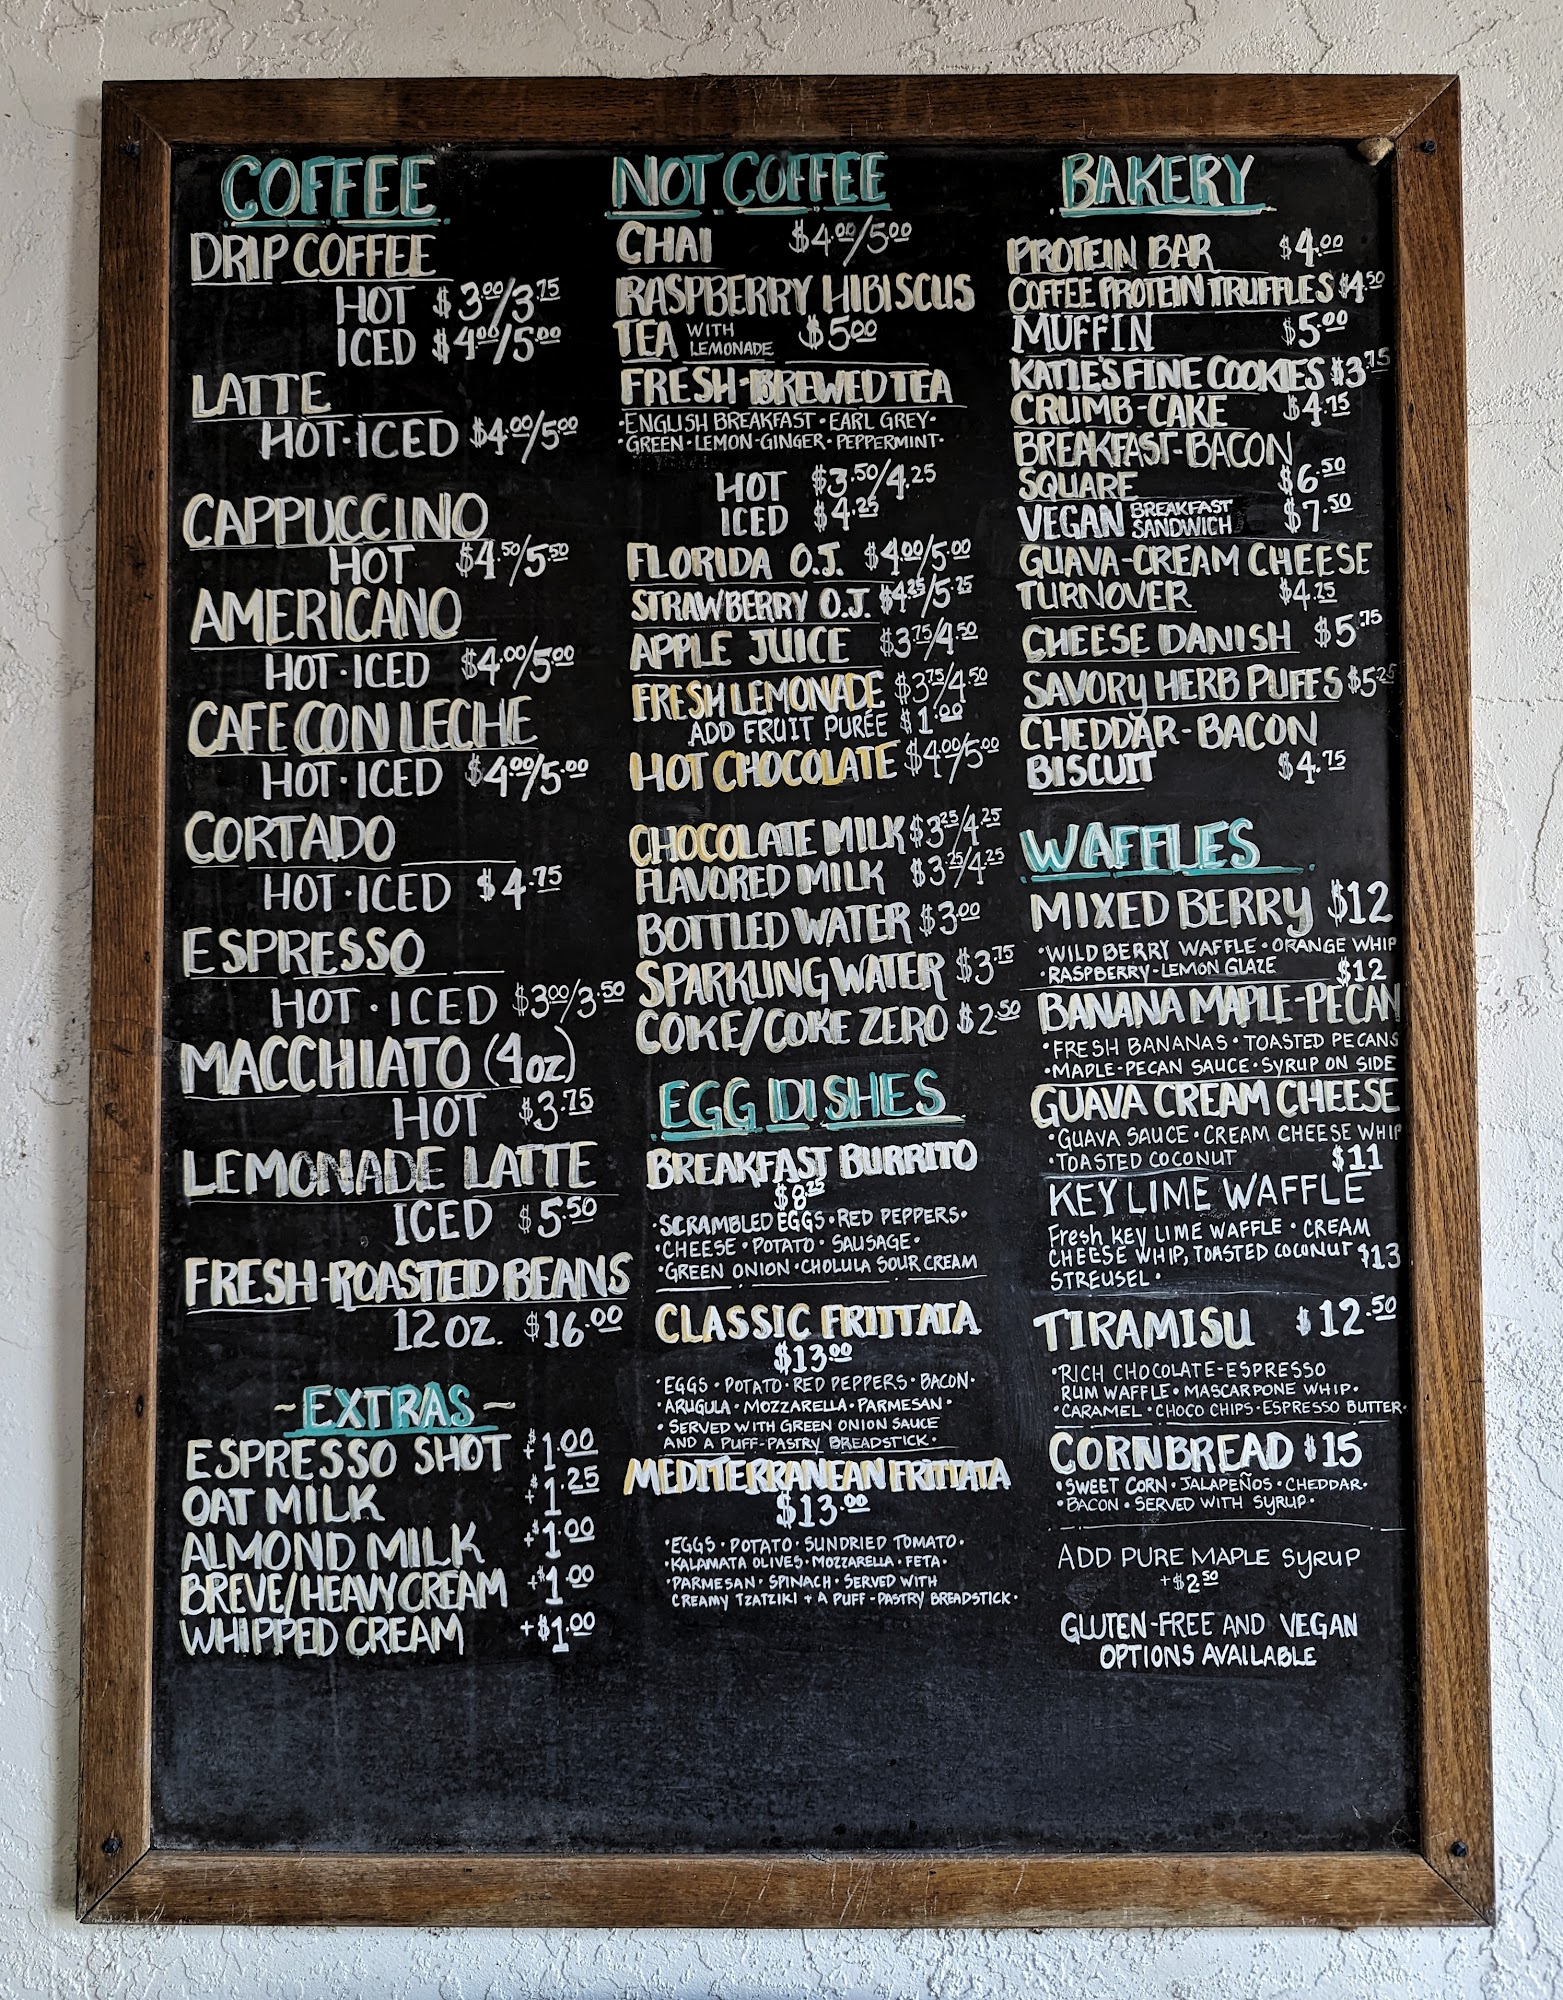 COFFEE
DRIP COFFEE
HOT $3.00/3.75
ICED $4.00/5.00
LATTE
HOT·ICED $4.00/5.00
CAPPUCCINO
HOT $4.50/5.50
AMERICANO
HOT·ICED $4.00/5.00
CAFE CON LECHE
HOT·ICED $4.00/5.00
CORTADO
HOT·ICED $4.75
ESPRESSO
HOT·ICED $3.00/3.50
MACCHIATO (4oz)
HOT $3.75
LEMONADE LATTE
ICED $5.50
FRESH-ROASTED BEANS
12 OZ. $16.00
~EXTRAS~
ESPRESSO SHOT +$1.00
OAT MILK +$1.25
ALMOND MILK +$1.00
BREVE/HEAVY CREAM +$1.00
WHIPPED CREAM +$1.00
NOT COFFEE
CHAI $4.00/5.00
RASPBERRY HIBISCUS
TEA WITH LEMONADE $5.00
FRESH-BREWED TEA
·ENGLISH BREAKFAST·EARL GREY·
·GREEN·LEMON-GINGER·PEPPERMINT·
HOT $3.50/4.25
ICED $4.25
FLORIDA O.J. $4.00/5.00
STRAWBERRY O.J. $4.25/5.25
APPLE JUICE $3.75/4.50
FRESH LEMONADE $3.75/4.50
ADD FRUIT PURÉE $1.00
HOT CHOCOLATE $4.00/5.00
CHOCOLATE MILK $3.25/4.25
FLAVORED MILK $3.25/4.25
BOTTLED WATER $3.00
SPARKLING WATER $3.75
COKE/COKE ZERO $2.50
EGG DISHES
BREAKFAST BURRITO
$8.25
·SCRAMBLED EGGS·RED PEPPERS·
·CHEESE·POTATO·SAUSAGE·
·GREEN ONION·CHOLULA SOUR CREAM
CLASSIC FRITTATA
$13.00
·EGGS·POTATO·RED PEPPERS·BACON·
·ARUGULA·MOZZARELLA·PARMESAN·
·SERVED WITH GREEN ONION SAUCE
AND A PUFF-PASTRY BREADSTICK·
MEDITERRANEAN FRITTATA
$13.00
·EGGS·POTATO·SUNDRIED TOMATO·
·KALAMATA OLIVES·MOZZARELLA·FETA·
·PARMESAN·SPINACH·SERVED WITH
CREAMY TZATZIKI + A PUFF-PASTRY BREADSTICK·
BAKERY
PROTEIN BAR $4.00
COFFEE PROTEIN TRUFFLES $4.50
MUFFIN $5.00
KATIE'S FINE COOKIES $3.75
CRUMB-CAKE $4.75
BREAKFAST-BACON
SQUARE $6.50
VEGAN BREAKFAST SANDWICH $7.50
GUAVA-CREAM CHEESE
TURNOVER $4.75
CHEESE DANISH $5.75
SAVORY HERB PUFFS $5.25
CHEDDAR-BACON
BISCUIT $4.75
WAFFLES
MIXED BERRY $12
·WILD BERRY WAFFLE·ORANGE WHIP
·RASPBERRY-LEMON GLAZE $12
BANANA MAPLE-PECAN
·FRESH BANANAS·TOASTED PECANS
·MAPLE-PECAN SAUCE·SYRUP ON SIDE
GUAVA CREAM CHEESE
·GUAVA SAUCE·CREAM CHEESE WHIP
·TOASTED COCONUT $11
KEY LIME WAFFLE
Fresh KEY LIME WAFFLE · CREAM
CHEESE WHIP, TOASTED COCONUT $13
STREUSEL·
TIRAMISU $12.50
·RICH CHOCOLATE-ESPRESSO
RUM WAFFLE·MASCARPONE WHIP·
·CARAMEL·CHOCO CHIPS·ESPRESSO BUTTER·
CORNBREAD $15
·SWEET CORN·JALAPEÑOS·CHEDDAR·
·BACON·SERVED WITH SYRUP·
ADD PURE MAPLE SYRUP
+$2.50
GLUTEN-FREE AND VEGAN
OPTIONS AVAILABLE